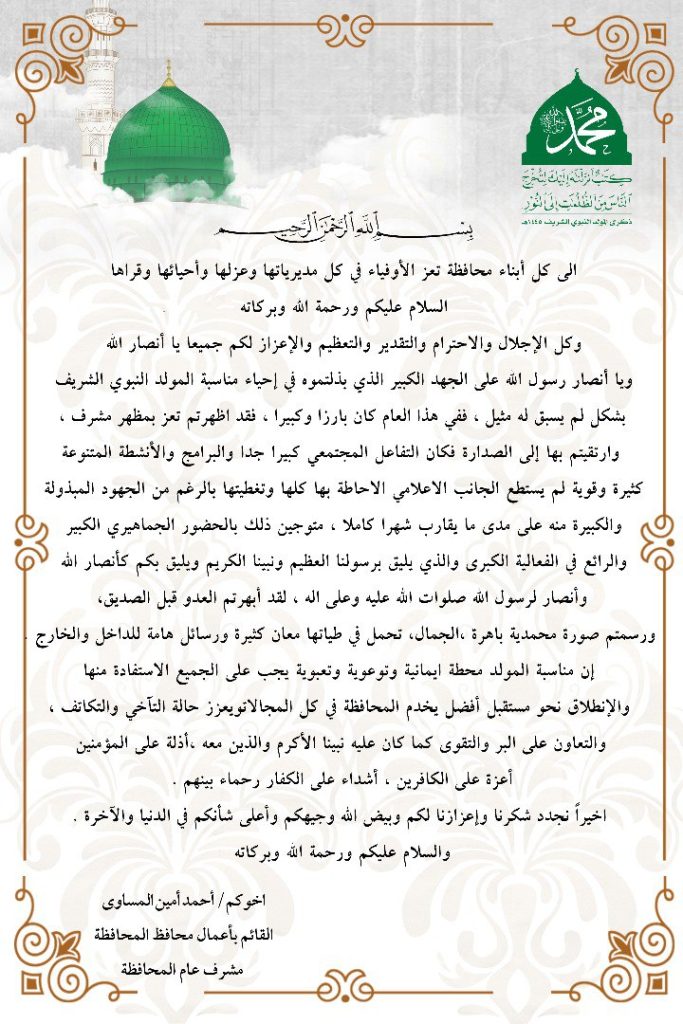 محمد
كتب أنزلنه إليك لتخرج
الناس من الظلمت إلى النور
ذكرى المولد النبوي الشريف ١٤٤٥هـ
بسم الله الرحمن الرحيم
الى كل أبناء محافظة تعز الأوفياء في كل مديرياتها وعزلها وأحيائها وقراها
السلام عليكم ورحمة الله وبركاته
وكل الإجلال والاحترام والتقدير والتعظيم والإعزاز لكم جميعا يا أنصار الله
ويا أنصار رسول الله على الجهد الكبير الذي بذلتموه في إحياء مناسبة المولد النبوي الشريف
بشكل لم يسبق له مثيل ، ففي هذا العام كان بارزا وكبيرا ، فقد اظهرتم تعز بمظهر مشرف ،
وارتقيتم بها إلى الصدارة فكان التفاعل المجتمعي كبيرا جدا والبرامج والأنشطة المتنوعة
كثيرة وقوية لم يستطع الجانب الاعلامي الاحاطة بها كلها وتغطيتها بالرغم من الجهود المبذولة
والكبيرة منه على مدى ما يقارب شهرا كاملا ، متوجين ذلك بالحضور الجماهيري الكبير
والرائع في الفعالية الكبرى والذي يليق برسولنا العظيم ونبينا الكريم ويليق بكم كأنصار الله
وأنصار لرسول الله صلوات الله عليه وعلى اله ، لقد أبهرتم العدو قبل الصديق،
ورسمتم صورة محمدية باهرة ،الجمال، تحمل في طياتها معان كثيرة ورسائل هامة للداخل والخارج .
إن مناسبة المولد محطة ايمانية وتوعوية وتعبوية يجب على الجميع الاستفادة منها
والإنطلاق نحو مستقبل أفضل يخدم المحافظة في كل المجالاتويعزز حالة التآخي والتكاتف ،
والتعاون على البر والتقوى كما كان عليه نبينا الأكرم والذين معه ،أذلة على المؤمنين
أعزة على الكافرين ، أشداء على الكفار رحماء بينهم .
اخيراً نجدد شكرنا وإعزازنا لكم وبيض الله وجيهكم وأعلى شأنكم في الدنيا والآخرة .
والسلام عليكم ورحمة الله وبركاته
اخوكم/ أحمد أمين المساوى
القائم بأعمال محافظ المحافظة
مشرف عام المحافظة